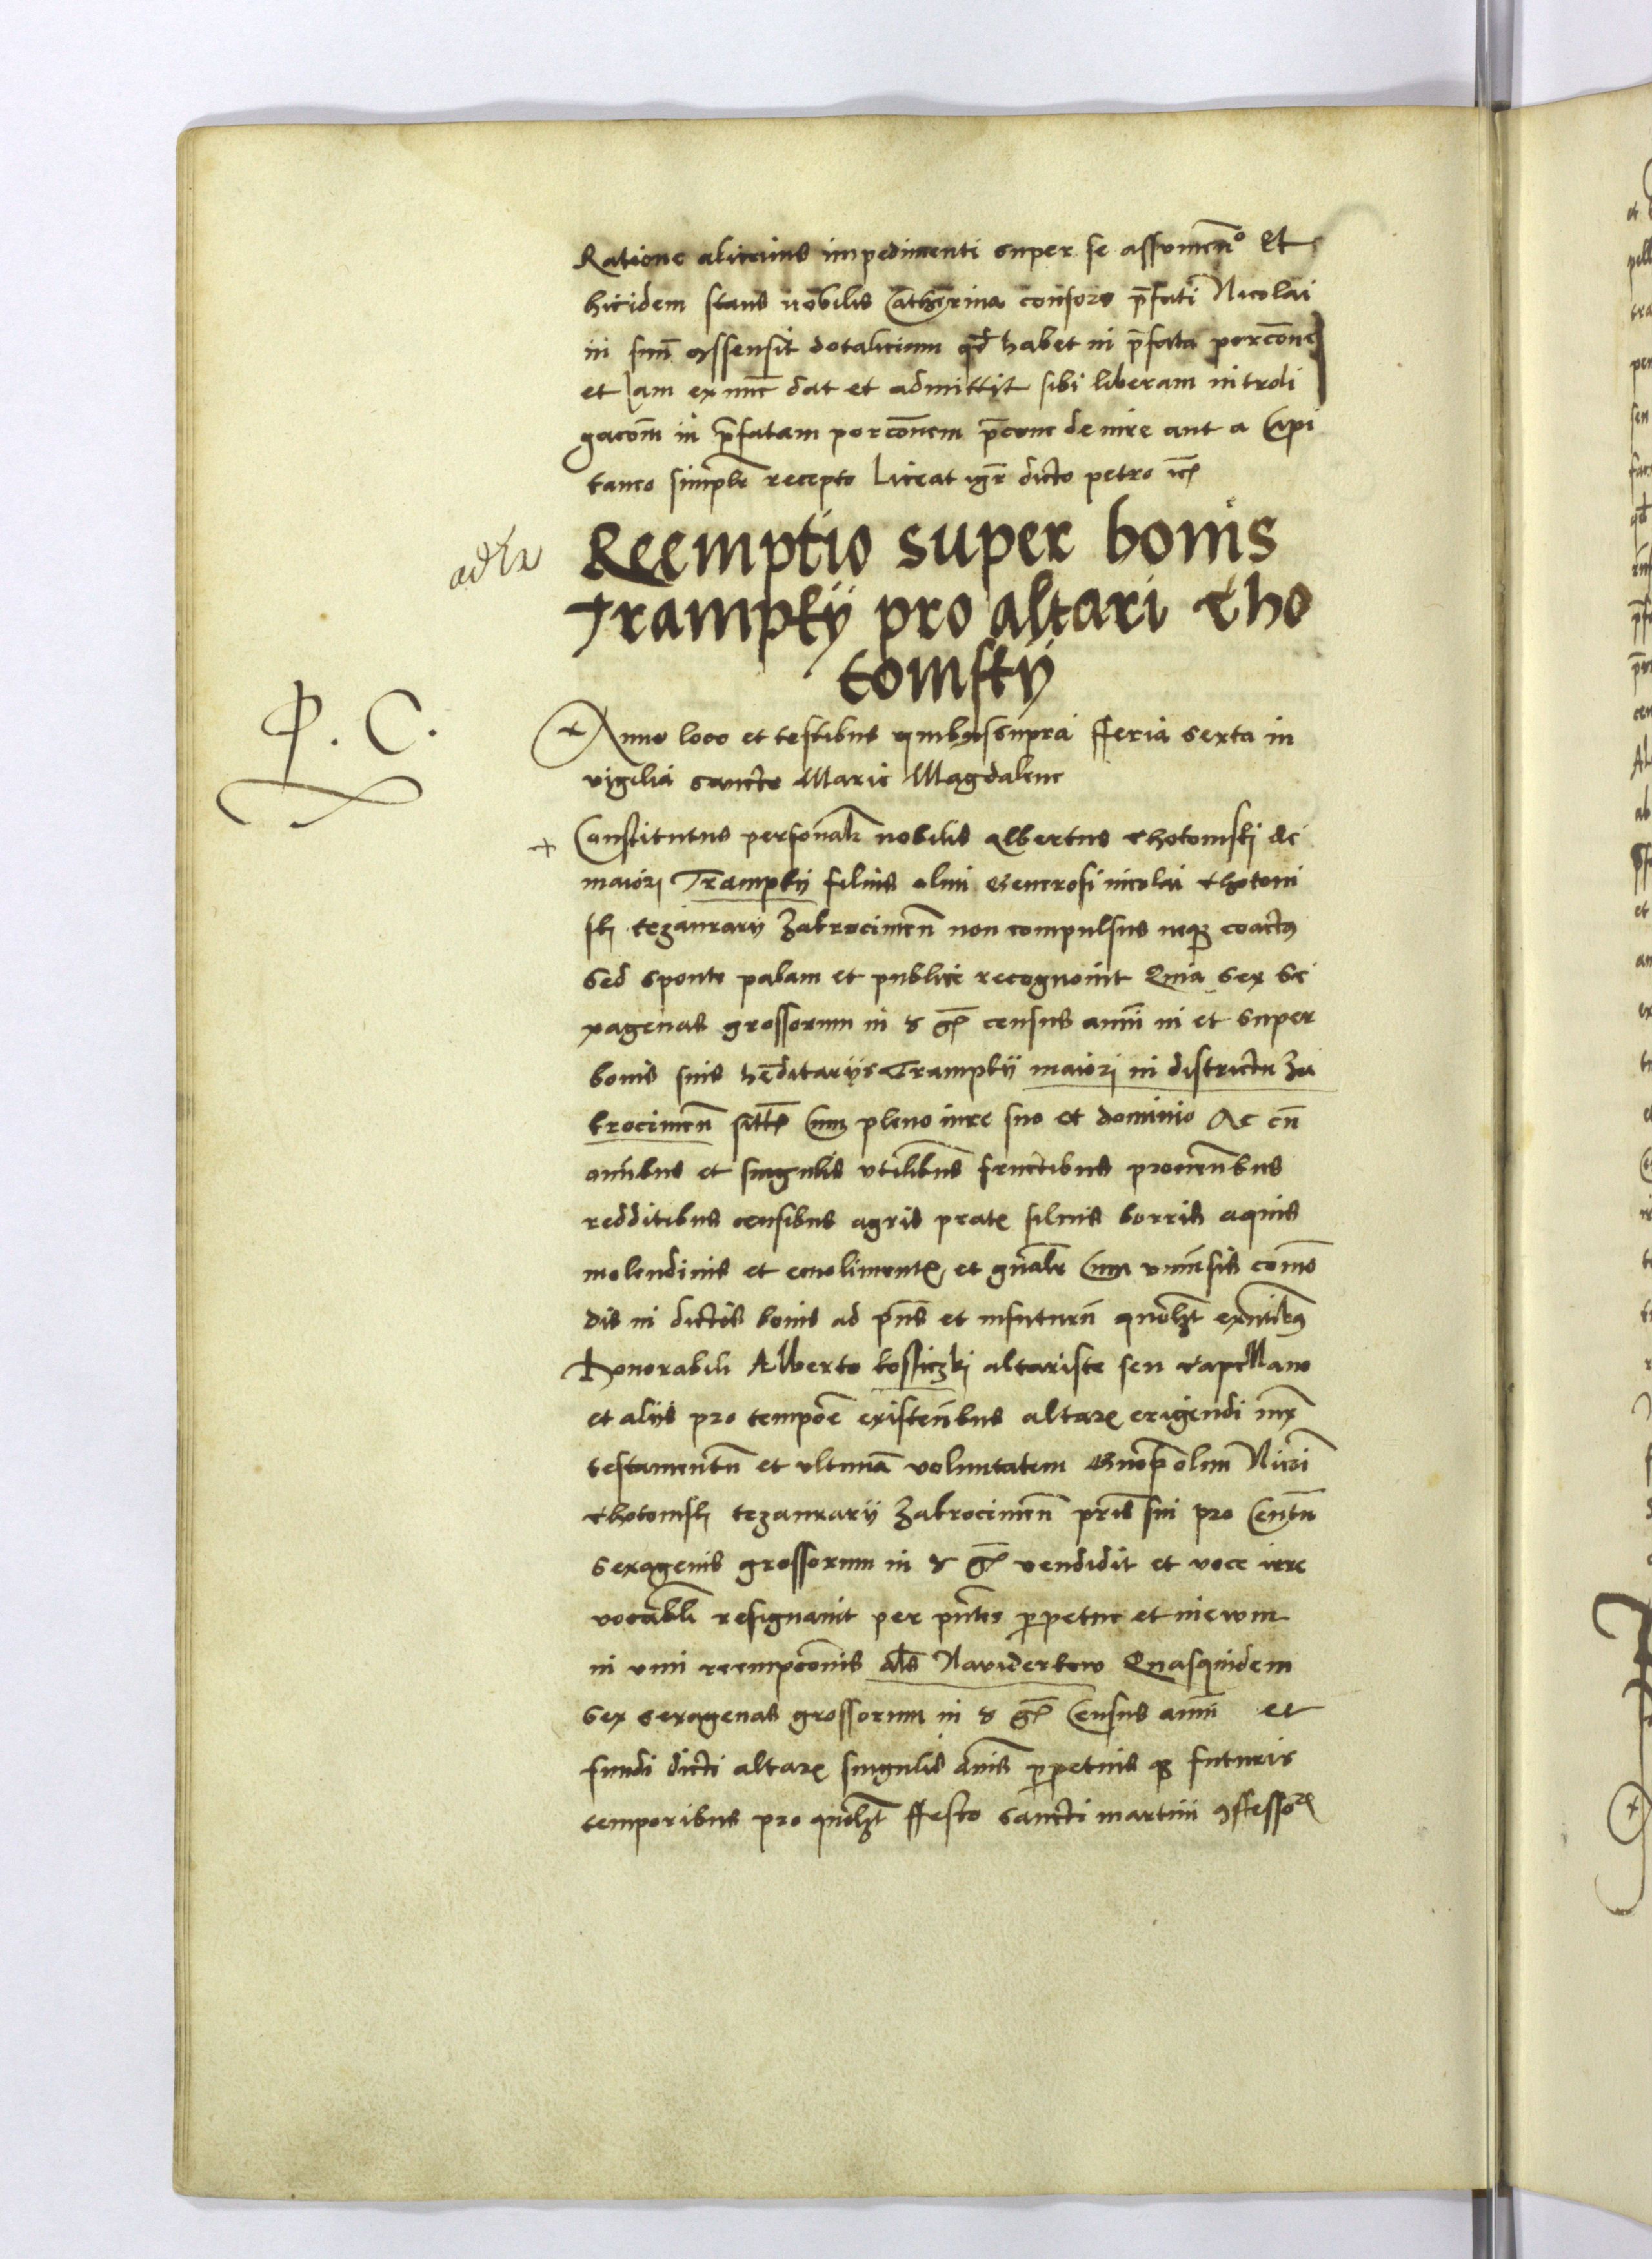 Ratione alicuius impedimenti super se assumen̄o Et
hicidem stans nobilis Catherina consors p̄fati Nicolai
in suū ꝯssensit dotalicium qd̄ habet in p̄fata porcōne
et Jam ex nūc dat et admittit sibi liberam introli
gacōm in p̄fatam porcōnem p̄
taneo simplr̄ recepto Liceat igr̄ dicto petro
Reemptio super bonis
Trampky pro altari Cho
tomsky
P. C.
Anno loco et testibus quibus supra fferia sexta in
vigilia sancte Marie Magdalene
Constitutus personalr̄ nobilis Albertus Chotomski de
maiori Trampky filius olim Generosi nicolai Chotom
ski tezaurarii Zakrocimen̄ non compulsus neqꝫ coactꝰ
sed sponte palam et publice recognouit Quia sex se
xagenas grossorum in census anni in et super
bonis suis hēditariis Trampky maiori in districtu Za
krocimen̄ Cum pleno iure suo et dominio Ac cū
omibus et singulis vtilibus fructibus prouentibus
redditibus censibus agris prat siluis borris aquis
molendinis et emoliment et gn̄alr̄ Cum vniuersis comō
dis in dictis bonis ad p̄ns et infuturū quolꝫt exn̄tibꝰ
Honorabili Alberto kossiczki altariste seu Capellano
et aliis pro tempore existen̄bus altar erigendi iux
testamentū et vltimā voluntatem olim Nicoi
Chotomski tezaurarii Zakrocimen̄ pris sui pro Centū
sexagenis grossorum in vendidit et voce irre
vocabli resignauit per pn̄tes p̄petue et in ewm
in vim reempcōnis als Nawiderkow Quasquidem
sex sexagenas grossorum in Census anni et
fundi dicti altar singulis annis p̄petuis qꝫ futuris
temporibus pro quolꝫt ffesto sancti martini ꝯffessor